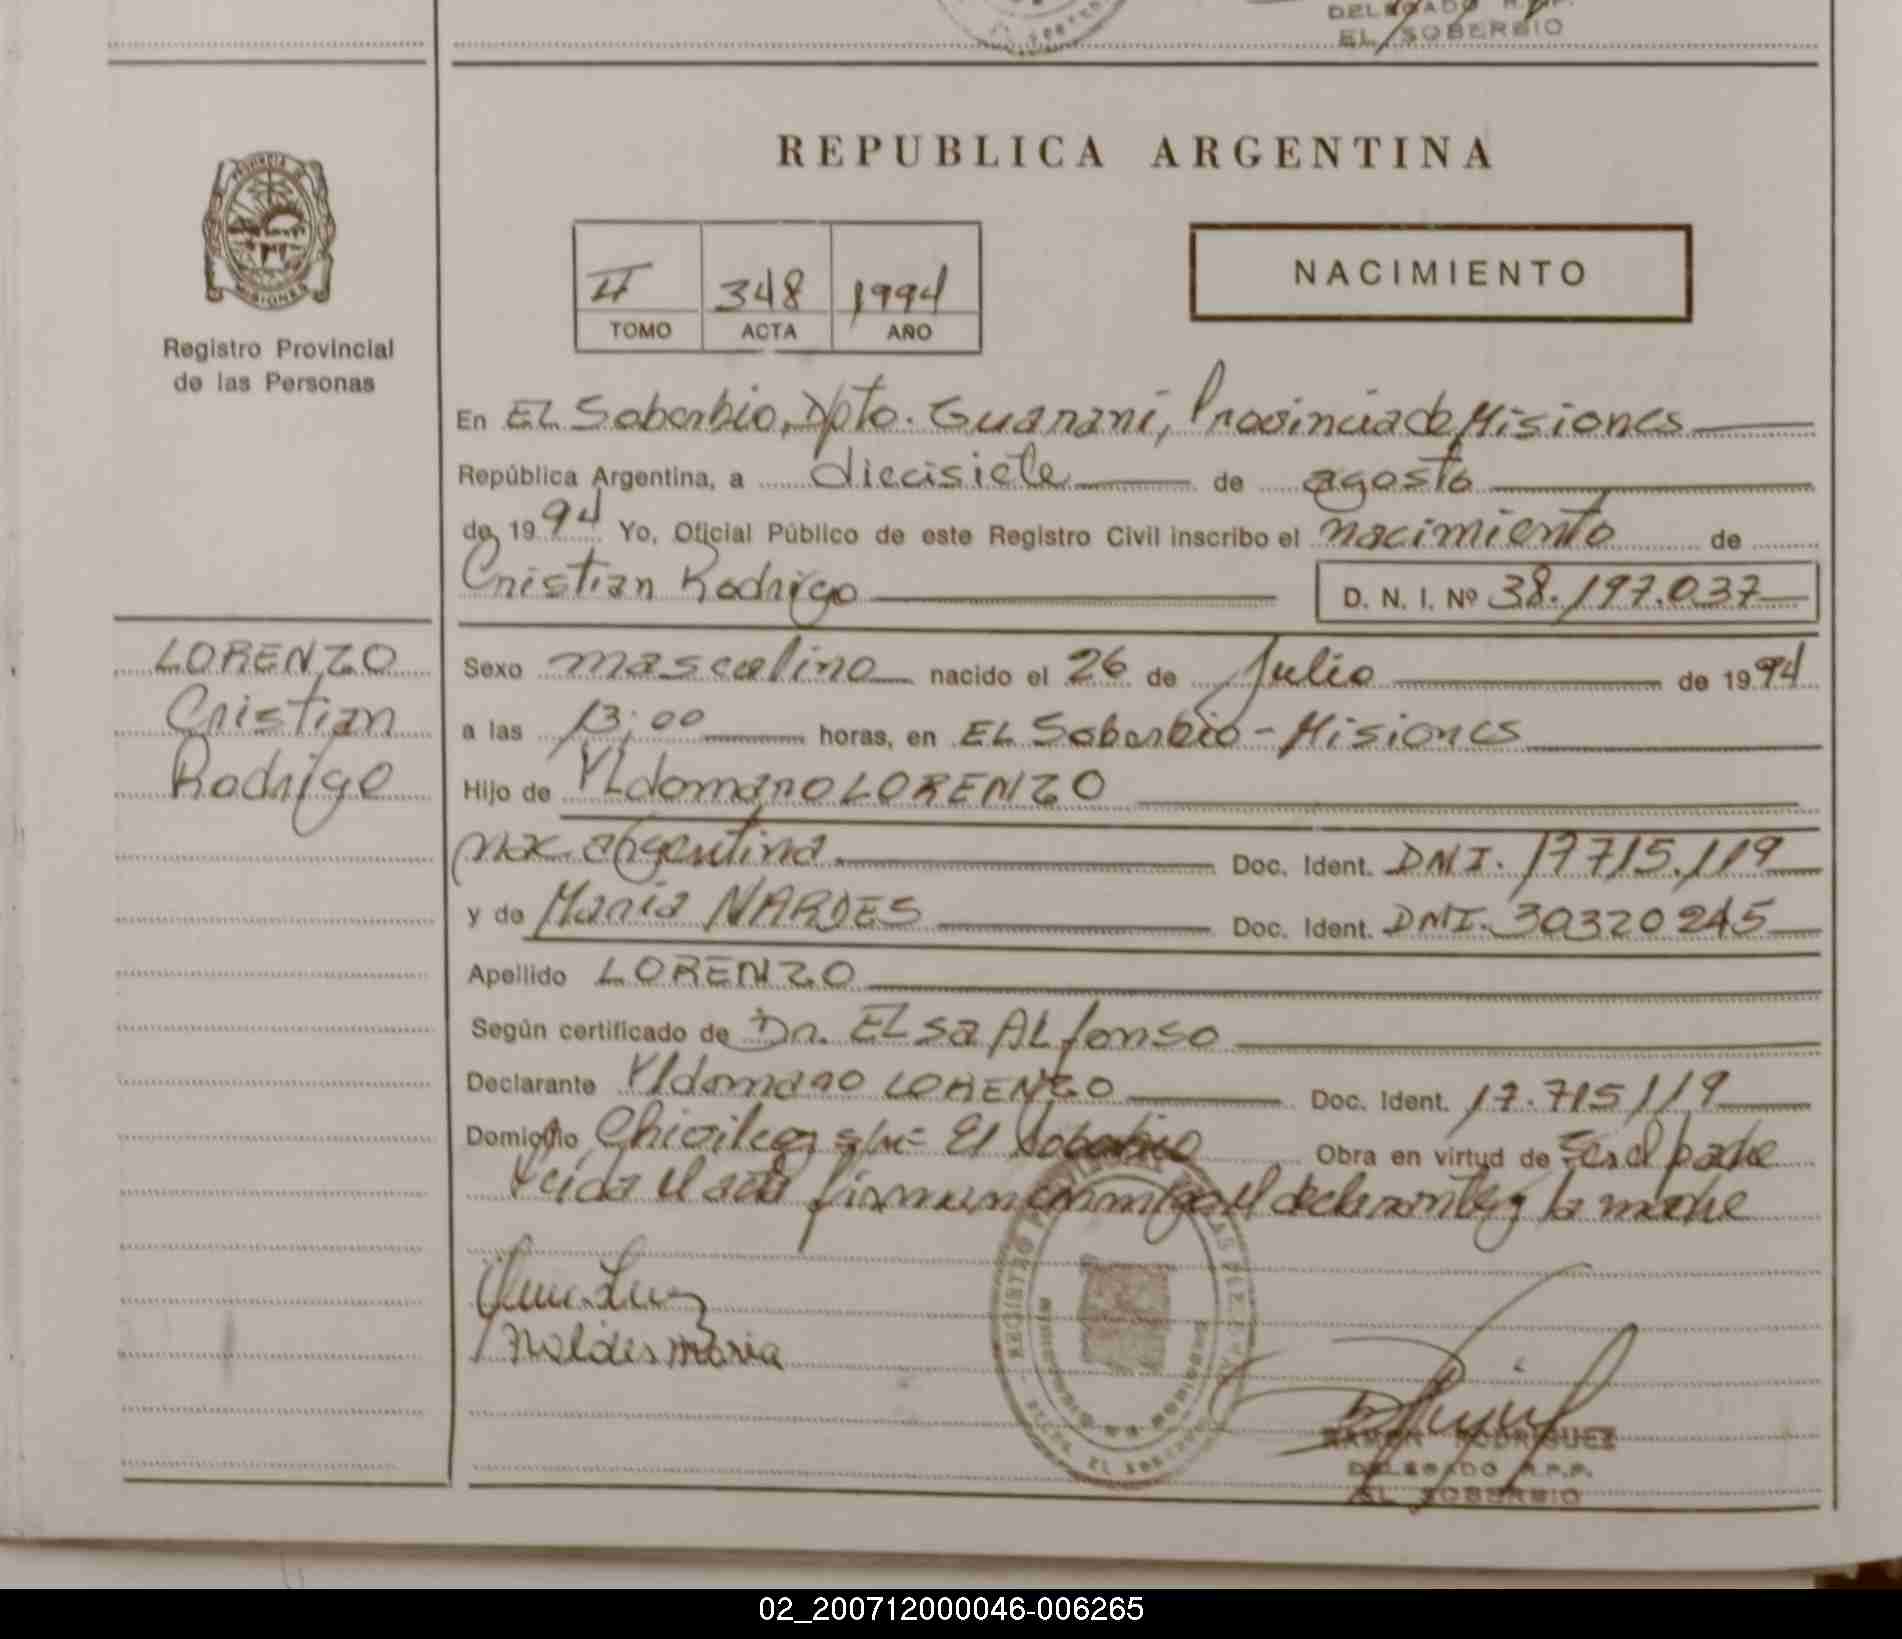 DELEGADO R.P.P.
EL SOBERBIO
REPUBLICA ARGENTINA
MISIONES
Registro Provincial
de las Personas
II 348 1994
TOMO ACTA AÑO
NACIMIENTO
En EL Soberbio, Dpto. Guaraní, Provincia de Misiones
República Argentina, a diecisiete de agosto
de 1994 Yo, Oficial Público de este Registro Civil inscribo el nacimiento de
Cristian Rodrigo D. N. I. Nº 38.197.037
LORENZO
Cristian
Rodrigo
Sexo masculino nacido el 26 de Julio de 1994
a las 13:00 horas, en EL Soberbio - Misiones
Hijo de Yldomaro LORENZO
nac. argentina Doc. Ident. DNI. 17715.119
y de María NARDES Doc. Ident. DNI. 30320245
Apellido LORENZO
Según certificado de Dr. ELsa ALfonso
Declarante Yldomaro LORENZO Doc. Ident. 17.715119
Domicilio El Soberbio Obra en virtud de Ser el padre
Leida el acta firman conmigo el declarante y la madre
maria
REGISTRO
RAMON RODRIGUEZ
DELEGADO R.P.P.
EL SOBERBIO
02_200712000046-006265